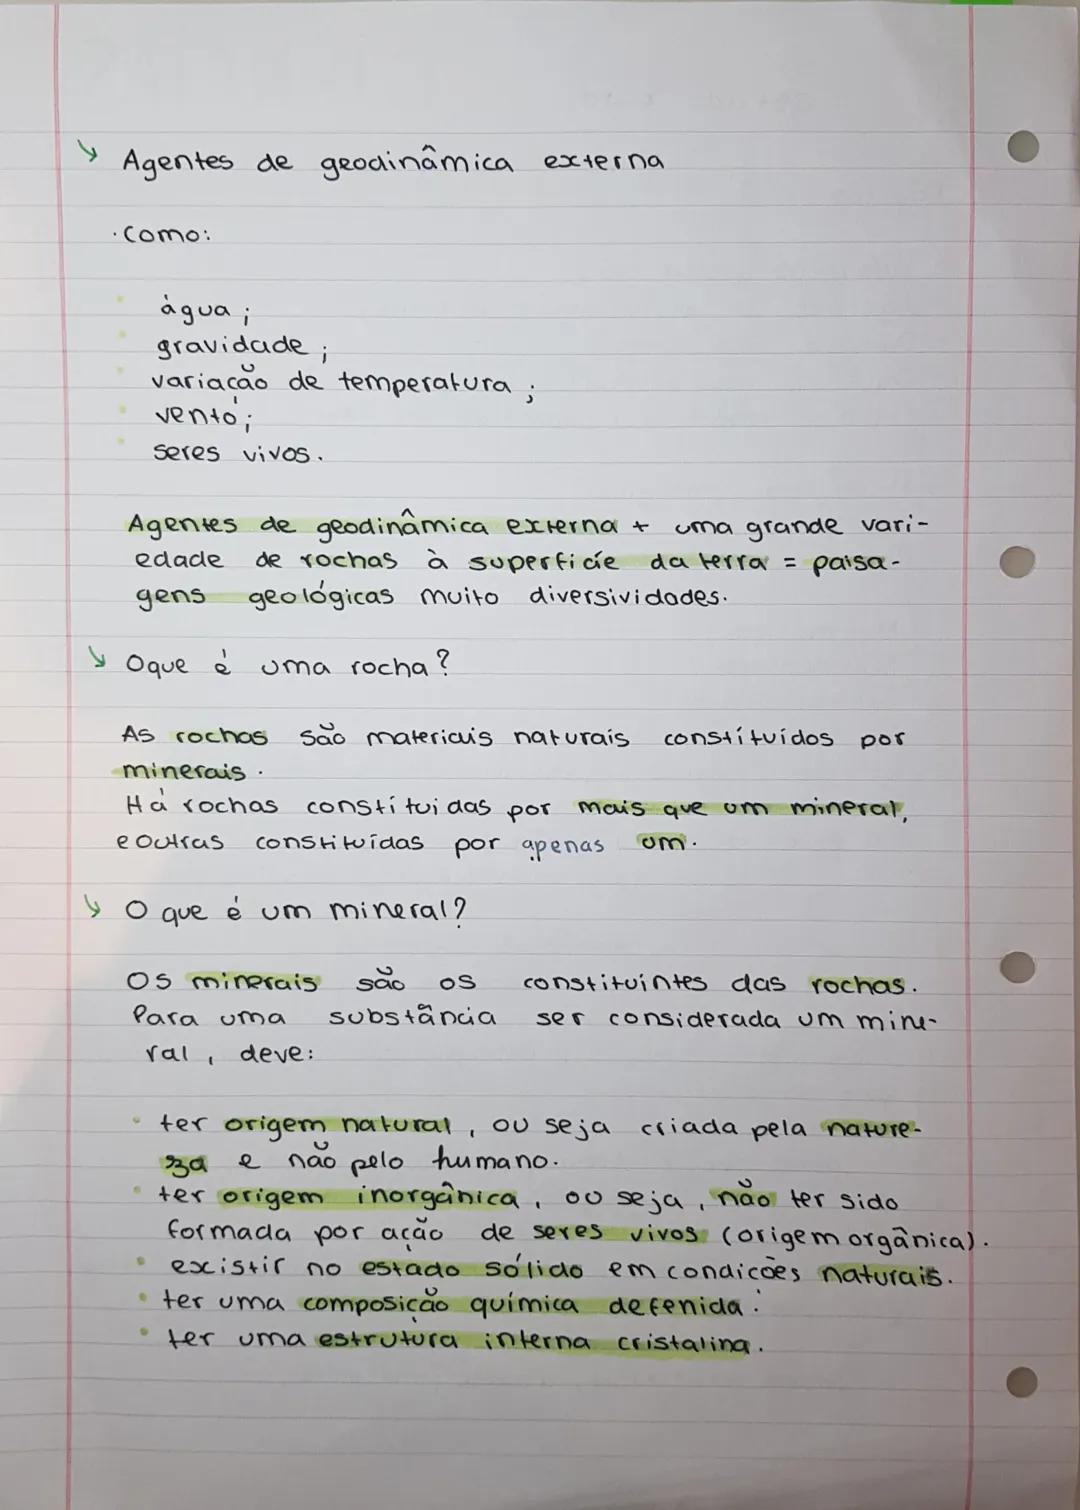 Agentes de geodinâmica externa
· Como:
água ;
gravidade ;
variação de temperatura ;
vento ;
seres vivos .
Agentes de geodinâmica externa + uma grande vari-
edade de rochas à superfície da terra = paisa-
gens geológicas muito diversividades.
Oque é uma rocha ?
As rochas são materiais naturais constítuídos por
minerais .
Há rochas constítuidas por mais que um mineral,
e outras constituídas por apenas um .
O que é um mineral ?
Os minerais são os constituíntes das rochas .
Para uma substância ser considerada um mine-
ral , deve :
• ter origem natural , ou seja criada pela nature-
za e não pelo humano .
• ter origem inorgânica , ou seja , não ter sido
formada por ação de seres vivos (origem orgânica) .
• existir no estado sólido em condições naturais .
• ter uma composição química defenida .
• ter uma estrutura interna cristalina .